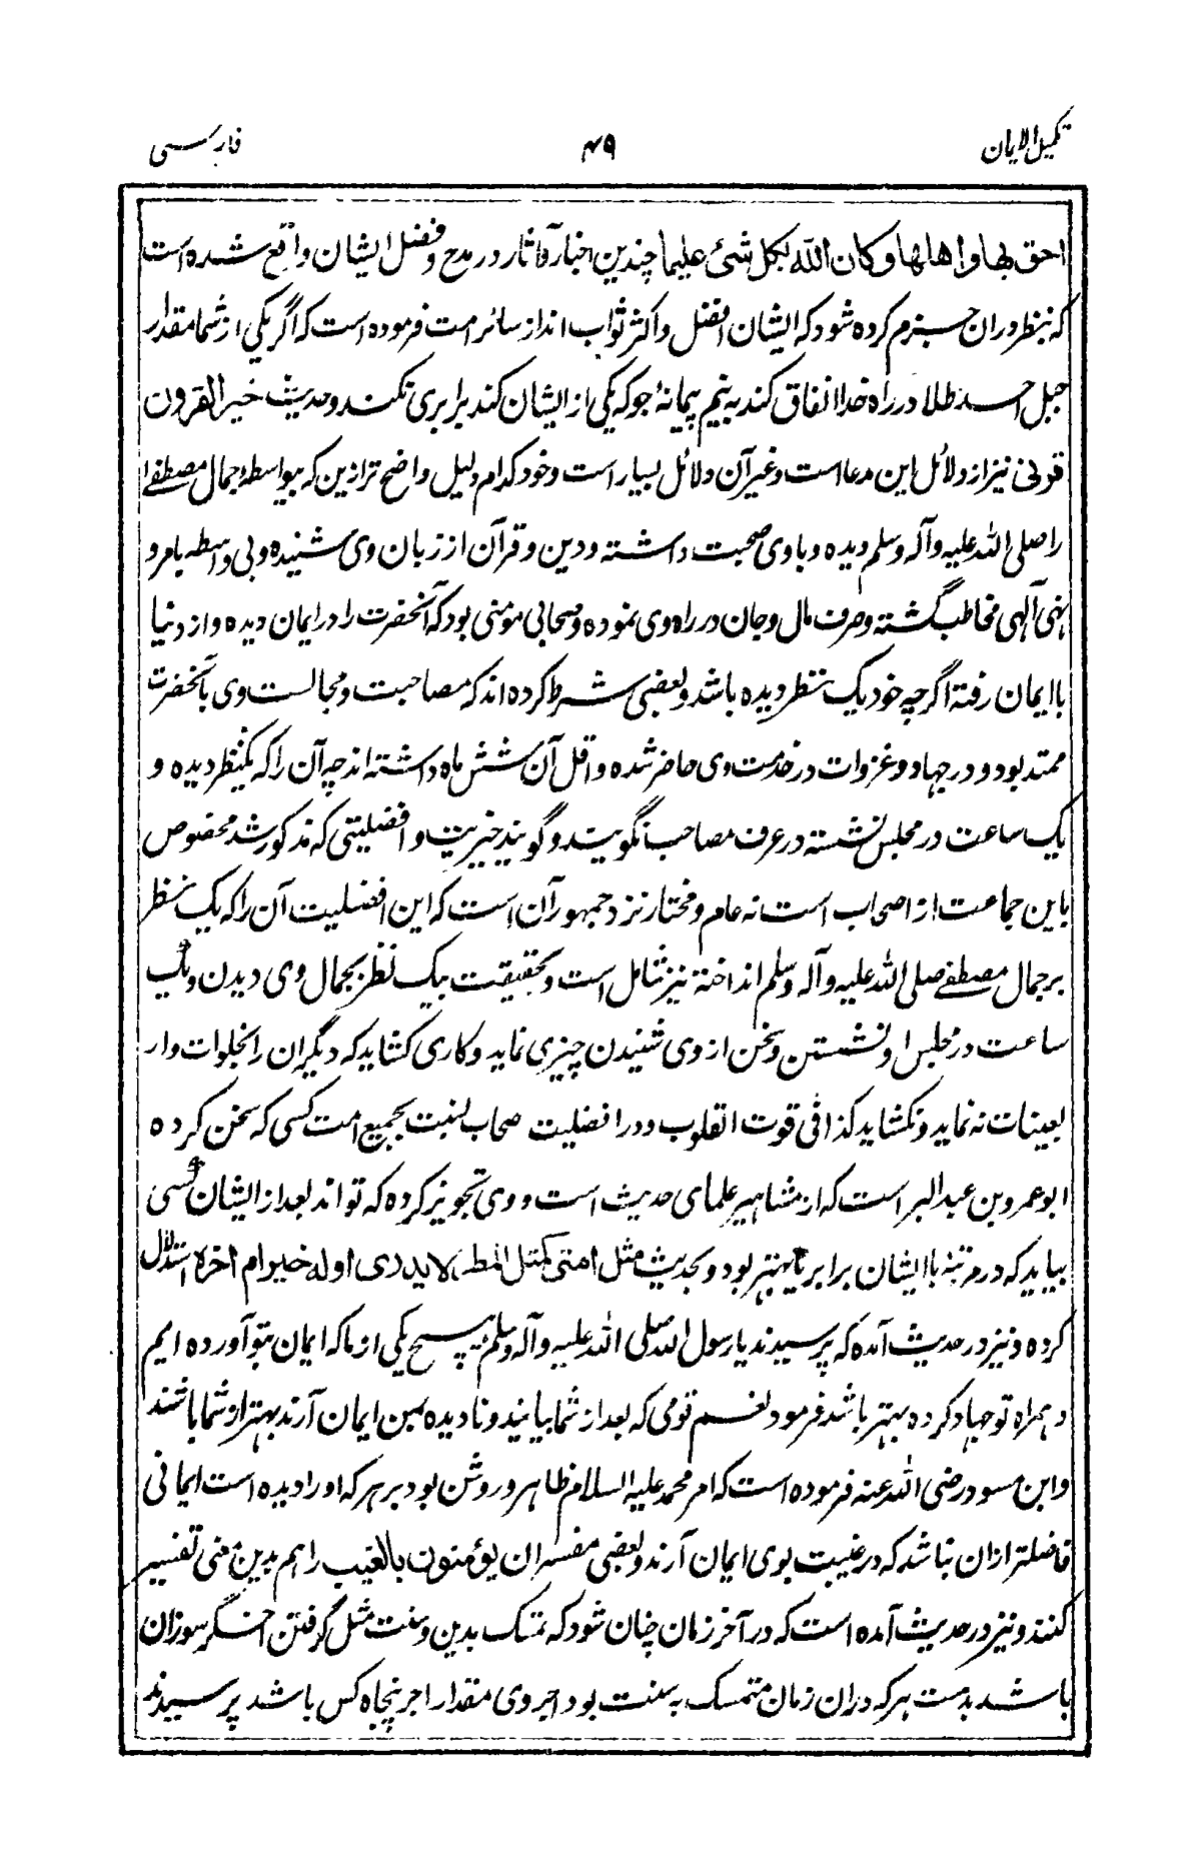 تکمیل الایمان
۴۹
فارسی
احق بها و اهلها و کان الله بکل شیٔ علیما چندین اخبار و آثار در مدح و فضل ایشان واقع شده است
که بنظر دران جزم کرده شود که ایشان افضل و اکثر ثواب اند از سائر امت فرموده است که اگر یکی از شما مقدار
جبل احد طلا در راه خدا انفاق کند به نیم پیمانهٔ جو که یکی از ایشان کند برابری نکند و حدیث خیر القرون
قرنی نیز از دلائل این مدعا است و غیر آن دلائل بسیار است و خود کدام دلیل واضح تر ازین که بیواسطه جمال مصطفے
را صلی الله علیه و آله وسلم دیده و با وی صحبت داشته و دین و قرآن از زبان وی شنیده و بی واسطه بامر و
نهی آلهی مخاطب گشته و صرف مال و جان در راه وی نموده و صحابی مومنی بود که آنحضرت را در ایمان دیده و از دنیا
با ایمان رفته اگرچه خود یک نظر دیده باشد و بعضی شرط کرده اند که مصاحبت و مجالست وی با آنحضرت
ممتد بود و در جهاد و غزوات در خدمت وی حاضر شده و اقل آن شش ماه داشته اند چه آن را که یکنظر دیده و
یک ساعت در مجلس نشسته در عرف مصاحب نگویند و گویند خیریت و افضلیتی که مذکور شد مخصوص
باین جماعت از اصحاب است نه عام و مختار نزد جمهور آن است که این افضلیت آن را که یک نظر
بر جمال مصطفے صلی الله علیه و آله وسلم انداخته نیز شامل است و بحقیقت بیک نظر بجمال وی دیدن و یک
ساعت در مجلس او نشستن و سخن از وی شنیدن چیزی نماید و کاری کشاید که دیگران را بخلوات و ار
بعینات نه نماید و نکشاید کذا فی قوت القلوب و در افضلیت صحاب بنسبت بجمیع امت کسی که سخن کرده
ابو عمرو بن عبد البر است که از مشاهیر علمای حدیث است و وی تجویز کرده که تواند بعد از ایشان کسی
بیاید که در مرتبه با ایشان برابر یا بهتر بود و بحدیث مثل امتی کمثل المطر لا یدری اوله خیر ام اخره استدلال
کرده و نیز در حدیث آمده که پرسیدند یا رسول الله صلی الله علیه و آله وسلم هیچ یکی از ما که ایمان بتو آورده ایم
و همراه تو جهاد کرده بهتر باشد فرمود نعم قومی که بعد از شما بیایند و نادیده بمن ایمان آرند بهتر از شما باشند
و ابن مسود رضی الله عنه فرموده است که امر محمد علیه السلام ظاهر و روشن بود بر هر که او را دیده است ایمانی
فاضلتر ازان نباشد که در غیبت بوی ایمان آرند و بعضی مفسران یؤمنون بالغیب را هم بدین معنی تفسیر
کنند و نیز در حدیث آمده است که در آخر زمان چنان شود که تمسک بدین و سنت مثل گرفتن اخگر سوزان
باشد بدست هر که دران زمان متمسک به سنت بود اجر وی مقدار اجر پنجاه کس باشد پرسیدند